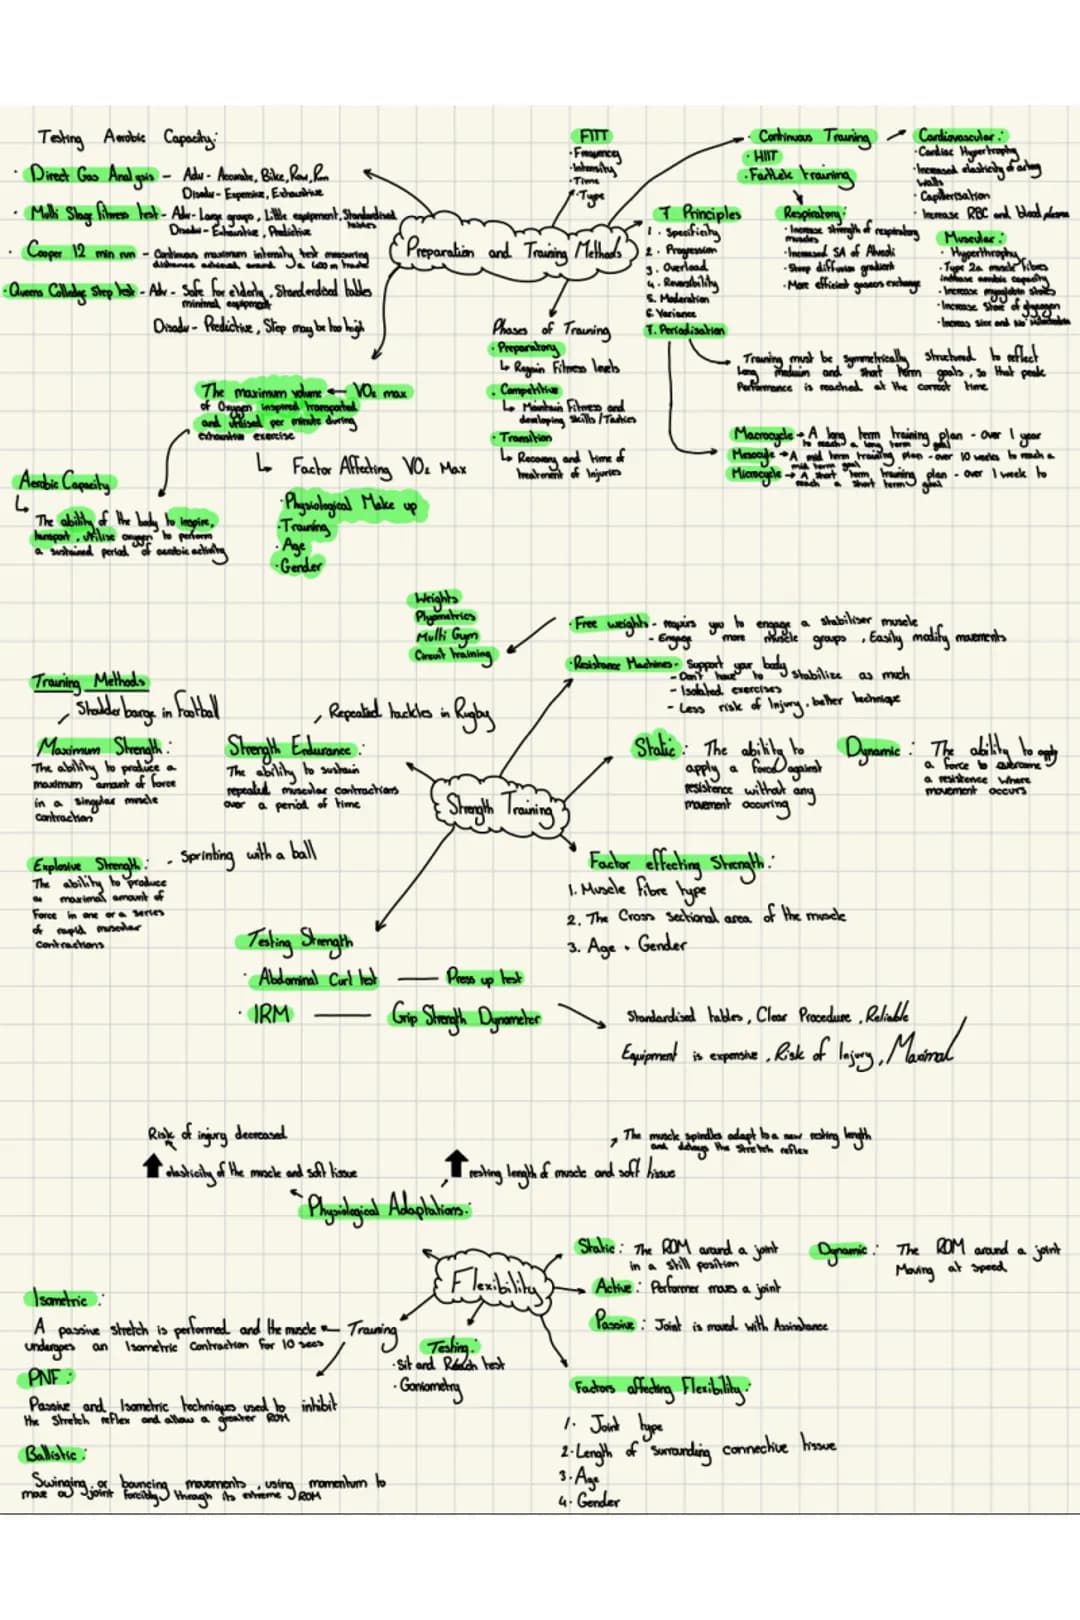 Testing Aerobic Capacity:
· Direct Gas Analysis - Adv - Accurate, Bike, Row, Run
Disadv - Expensive, Exhaustive
· Multi Stage fitness test - Adv - Large groups, Little equipment, Standardised tables
Disadv - Exhaustive, Predictive
· Cooper 12 min run - Continuous maximum intensity test measuring
distance achieved around a 400m track
· Queens Colledge Step test - Adv - Safe for elderly, Standardised tables
minimal equipment
Disadv - Predictive, Step may be too high
Preparation and Training Methods
FITT
· Frequency
· Intensity
· Time
· Type
7 Principles
1. Specificity
2. Progression
3. Overload
4. Reversibility
5. Moderation
6. Variance
7. Periodisation
· Continuous Training
· HIIT
· Fartlek training
Cardiovascular:
· Cardiac Hypertrophy
· Increased elasticity of artery
walls
· Capillarisation
· Increase RBC and blood plasma
Respiratory:
· Increase strength of respiratory
muscles
· Increased SA of Alveoli
· Steep diffusion gradient
· More efficient gaseous exchange
Muscular:
· Hyperthrophy
· Type 2a muscle fibres
increase aerobic capacity
· Increase myoglobin stores
· Increase Store of glycogen
· Increas size and No mitochondria
Training must be symmetrically structured to reflect
long medium and short term goals, so that peak
Performance is reached at the correct time
Macrocycle → A long term training plan - over 1 year
to reach a long term goal
Mesocycle → A mid term training plan - over 10 weeks to reach a
mid term goal
Microcycle → A short term training plan - over 1 week to
reach a short term goal
Phases of Training
· Preparatory
↳ Regain Fitness levels
· Competitive
↳ Maintain Fitness and
developing skills/Tactics
· Transition
↳ Recovery and time of
treatment of Injuries
The maximum volume ← VO2 max
of Oxygen inspired transported
and utilised per minute during
exhaustive exercise
↳ Factor Affecting VO2 Max
· Physiological Make up
· Training
· Age
· Gender
Aerobic Capacity
↳ The ability of the body to inspire,
transport, utilise oxygen to perform
a sustained period of aerobic activity
Weights
Plyometrics
Multi Gym
Circuit training
· Free weights - requirs you to engage a stabiliser muscle
- Engage more muscle groups, Easily modify movements
· Resistance Machines - Support your body
- Don't have to stabilize as much
- Isolated exercises
- Less risk of Injury, better technique
Training Methods
Shoulder barge in Football
Repeated tackles in Rugby
Maximum Strength:
The ability to produce a
maximum amount of force
in a singular muscle
contraction
Strength Endurance:
The ability to sustain
repeated muscular contractions
over a period of time
Strength Training
Static: The ability to
apply a force against
resistence without any
movement occuring
Dynamic: The ability to apply
a force to overcome
a resistence where
movement occurs
Explosive Strength: - Sprinting with a ball
The ability to produce
a maximal amount of
Force in one or a series
of rapid muscular
contractions
Factor effecting Strength:
1. Muscle Fibre type
2. The Cross sectional area of the muscle
3. Age + Gender
Testing Strength
· Abdominal Curl test — Press up test
· 1RM — Grip Strength Dynameter
Standardised tables, Clear Procedure, Reliable
Equipment is expensive, Risk of Injury, Maximal
Risk of injury decreased
elasticity of the muscle and soft tissue
The muscle spindles adapt to a new resting length
and delays the stretch reflex
resting length of muscle and soft tissue
Physiological Adaptations:
Flexibility
Static: The ROM around a joint
in a still position
Dynamic: The ROM around a joint
Moving at speed
Active: Performer moves a joint
Passive: Joint is moved with Assisstance
Isometric:
A passive stretch is performed and the muscle ← Training
undergoes an Isometric Contraction for 10 secs
PNF:
Passive and Isometric techniques used to inhibit
the Stretch reflex and allow a greater ROM
Ballistic:
Swinging or bouncing movements, using momentum to
move a joint forcibly through its extreme ROM
Testing:
· Sit and Reach test
· Goniometry
Factors affecting Flexibility:
1. Joint type
2. Length of surrounding connective tissue
3. Age
4. Gender